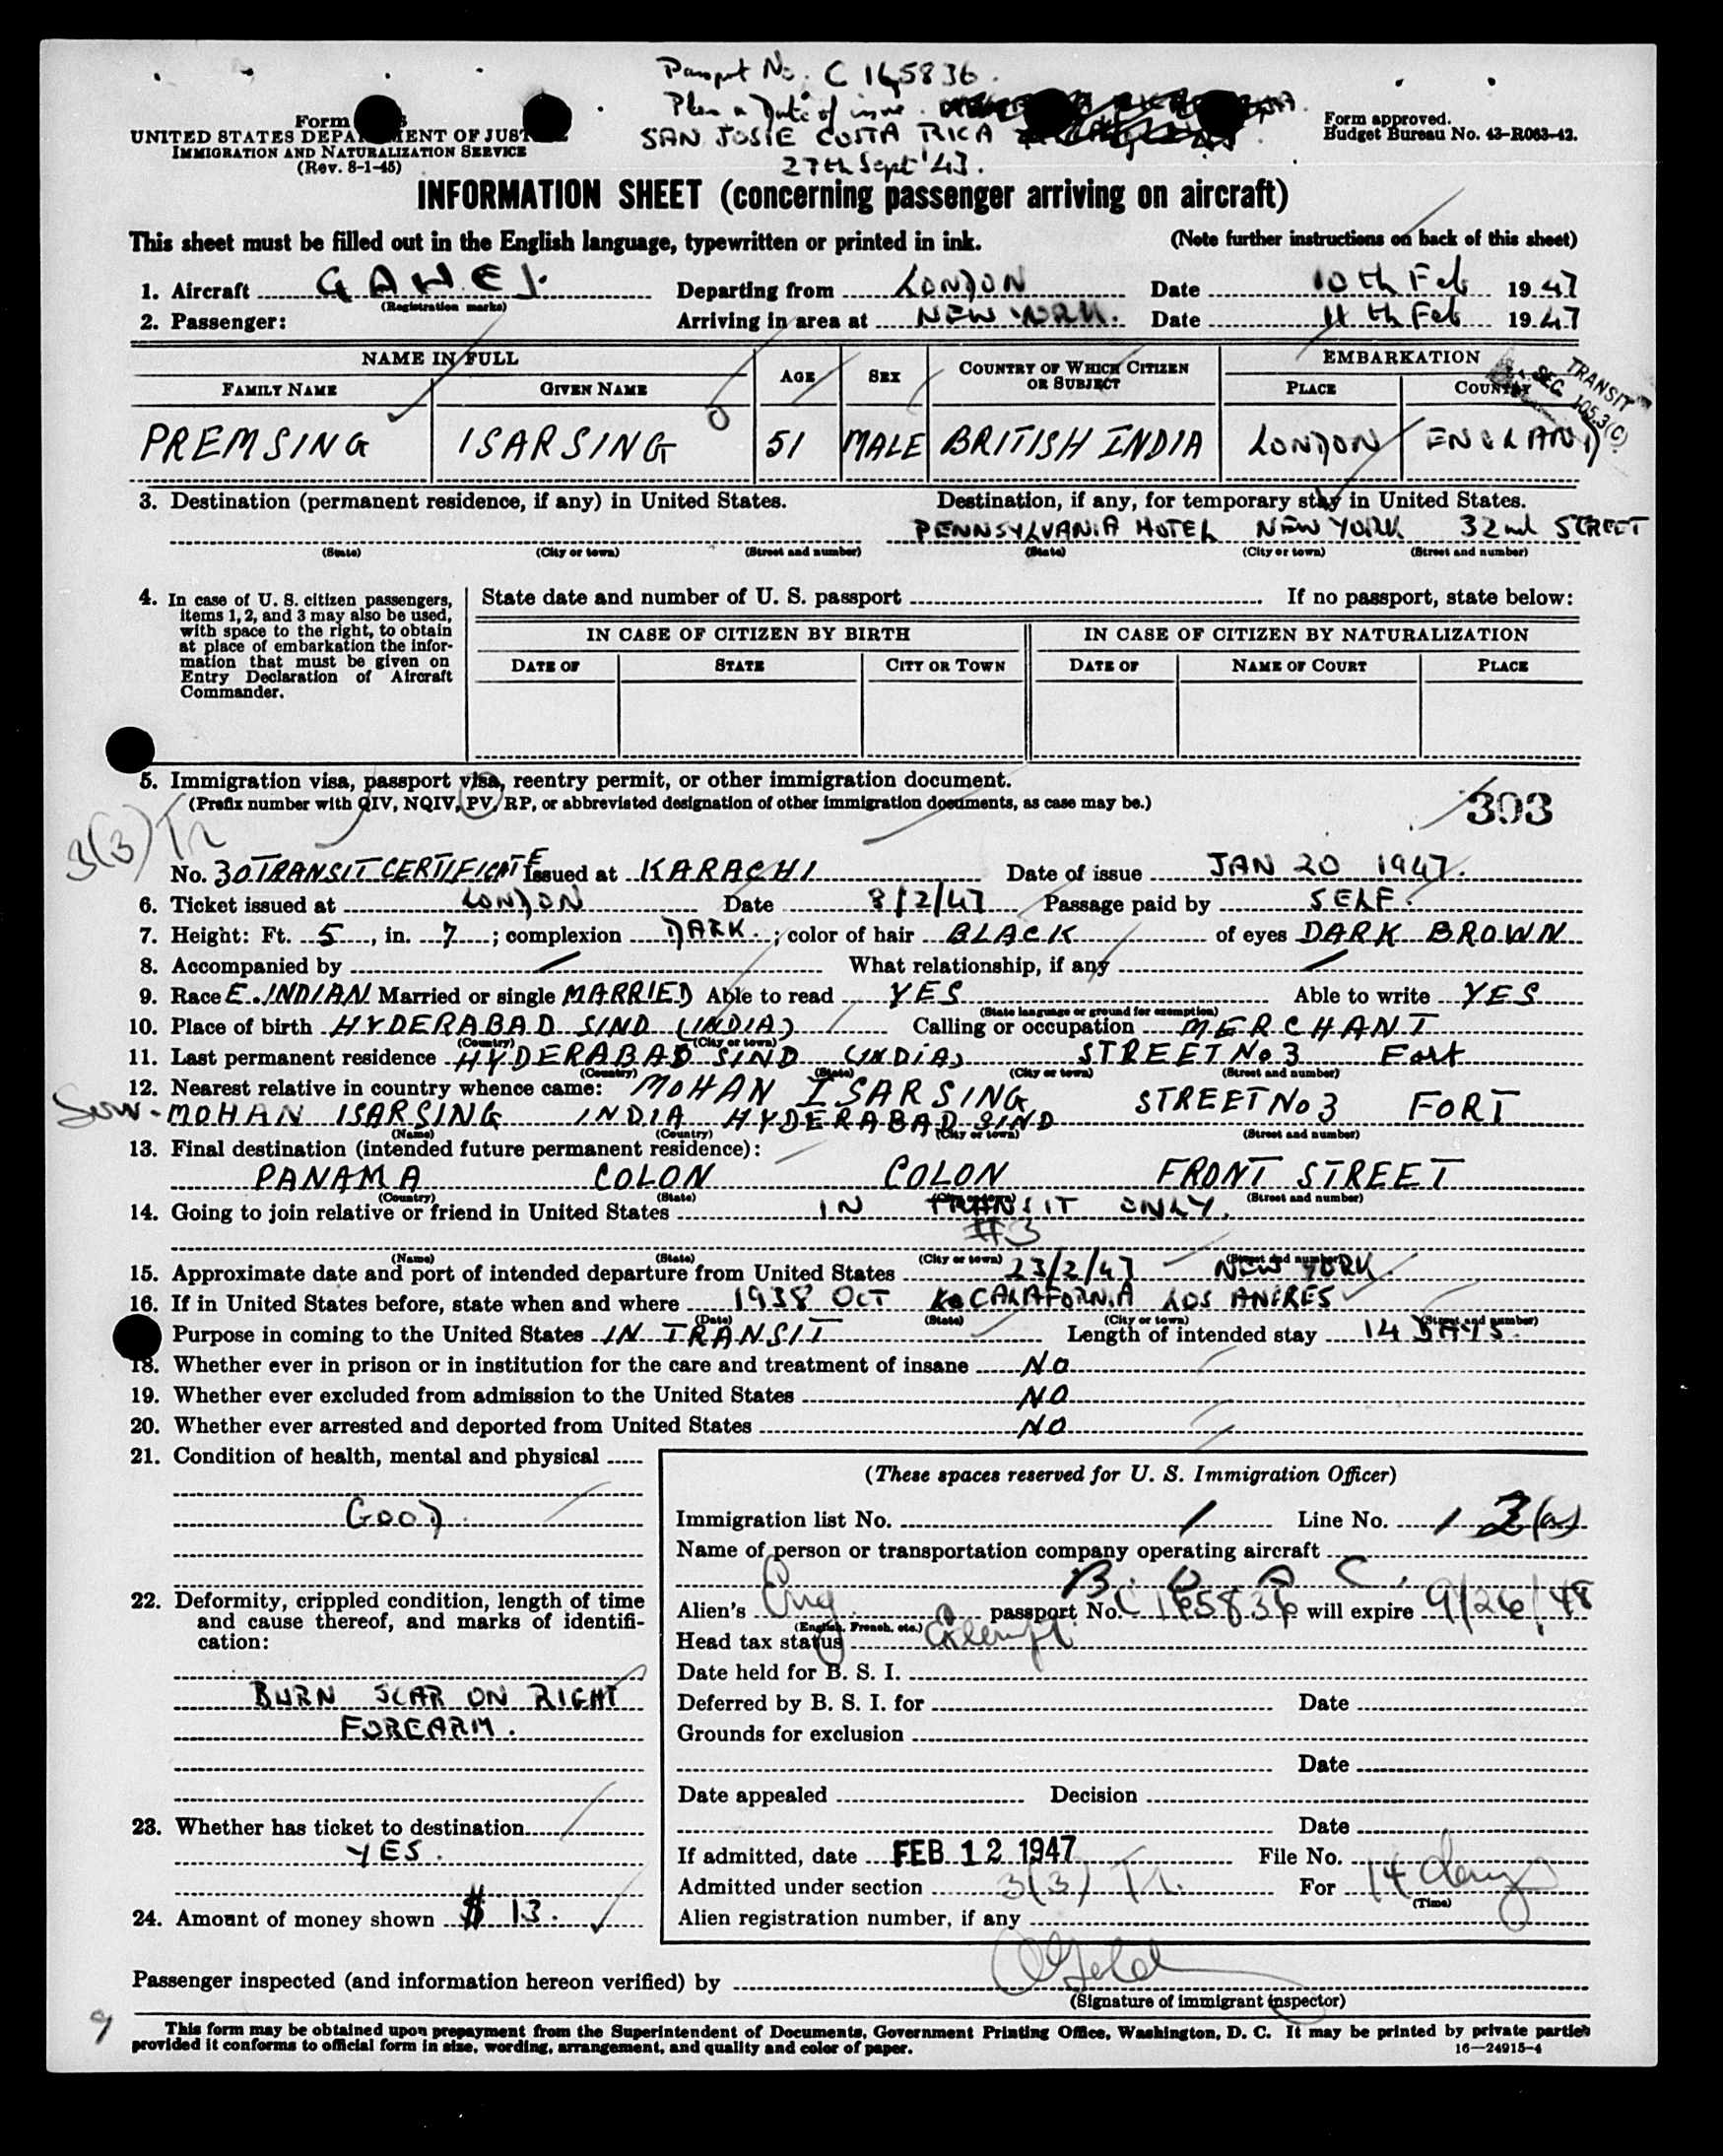 Passport No. C 165836.
Place & Date of issue.
SAN JOSIE COSTA RICA
27th Sept '43.
Form
UNITED STATES DEPA MENT OF JUST
IMMIGRATION AND NATURALIZATION SERVICE
(Rev. 8-1-45)
Form approved.
Budget Bureau No. 43-R063-42.
INFORMATION SHEET (concerning passenger arriving on aircraft)
This sheet must be filled out in the English language, typewritten or printed in ink. (Note further instructions on back of this sheet)
1. Aircraft G AHEJ. Departing from LONDON Date 10th Feb 1947
(Registration marks)
2. Passenger: Arriving in area at NEW YORK. Date 11th Feb 1947
NAME IN FULL AGE SEX COUNTRY OF WHICH CITIZEN OR SUBJECT EMBARKATION
FAMILY NAME GIVEN NAME PLACE COUNTRY
TRANSIT
SEC. 105.3(C)
PREMSING ISARSING 51 MALE BRITISH INDIA LONDON ENGLAND
3. Destination (permanent residence, if any) in United States. Destination, if any, for temporary stay in United States.
PENNSYLVANIA HOTEL NEW YORK 32nd STREET
(State) (City or town) (Street and number) (State) (City or town) (Street and number)
4. In case of U. S. citizen passengers, items 1, 2, and 3 may also be used, with space to the right, to obtain at place of embarkation the information that must be given on Entry Declaration of Aircraft Commander.
State date and number of U. S. passport If no passport, state below:
IN CASE OF CITIZEN BY BIRTH IN CASE OF CITIZEN BY NATURALIZATION
DATE OF STATE CITY OR TOWN DATE OF NAME OF COURT PLACE
5. Immigration visa, passport visa, reentry permit, or other immigration document.
(Prefix number with QIV, NQIV, PV, RP, or abbreviated designation of other immigration documents, as case may be.)
303
3(3) Tr
No. 30 TRANSIT CERTIFICATE Issued at KARACHI Date of issue JAN 20 1947.
6. Ticket issued at LONDON Date 8/2/47 Passage paid by SELF.
7. Height: Ft. 5, in. 7; complexion DARK.; color of hair BLACK of eyes DARK BROWN
8. Accompanied by / What relationship, if any /
9. Race E. INDIAN Married or single MARRIED Able to read YES Able to write YES
(State language or ground for exemption)
10. Place of birth HYDERABAD SIND (INDIA) Calling or occupation MERCHANT
(Country) (City or town)
11. Last permanent residence HYDERABAD SIND (INDIA) STREET No 3 Fort
(Country) (State) (City or town) (Street and number)
12. Nearest relative in country whence came: MOHAN ISARSING STREET No 3 FORT
Son - MOHAN ISARSING INDIA HYDERABAD SIND
(Name) (Country) (City or town) (Street and number)
13. Final destination (intended future permanent residence):
PANAMA COLON COLON FRONT STREET
(Country) (State) (City or town) (Street and number)
14. Going to join relative or friend in United States IN TRANSIT ONLY.
#3
(Name) (State) (City or town) (Street and number)
15. Approximate date and port of intended departure from United States 23/2/47 NEW YORK.
16. If in United States before, state when and where 1938 OCT CALAFORNIA LOS ANIRES
(Date) (State) (City or town) (Street and number)
Purpose in coming to the United States IN TRANSIT Length of intended stay 14 DAYS.
18. Whether ever in prison or in institution for the care and treatment of insane NO
19. Whether ever excluded from admission to the United States NO
20. Whether ever arrested and deported from United States NO
21. Condition of health, mental and physical
GOOD.
22. Deformity, crippled condition, length of time and cause thereof, and marks of identification:
BURN SCAR ON RIGHT
FOREARM.
23. Whether has ticket to destination
YES.
24. Amount of money shown $ 13.
(These spaces reserved for U. S. Immigration Officer)
Immigration list No. 1 Line No. 1 3(a)
Name of person or transportation company operating aircraft
B. O A C.
Alien's Eng. passport No. C 165836 will expire 9/26/48
(English, French, etc.)
Head tax status Exempt
Date held for B. S. I.
Deferred by B. S. I. for Date
Grounds for exclusion
Date
Date appealed Decision
Date
If admitted, date FEB 12 1947 File No.
Admitted under section 3(3) Tr. For 14 days
(Time)
Alien registration number, if any
Passenger inspected (and information hereon verified) by
(Signature of immigrant inspector)
9
This form may be obtained upon prepayment from the Superintendent of Documents, Government Printing Office, Washington, D. C. It may be printed by private parties
provided it conforms to official form in size, wording, arrangement, and quality and color of paper.
16—24915-4